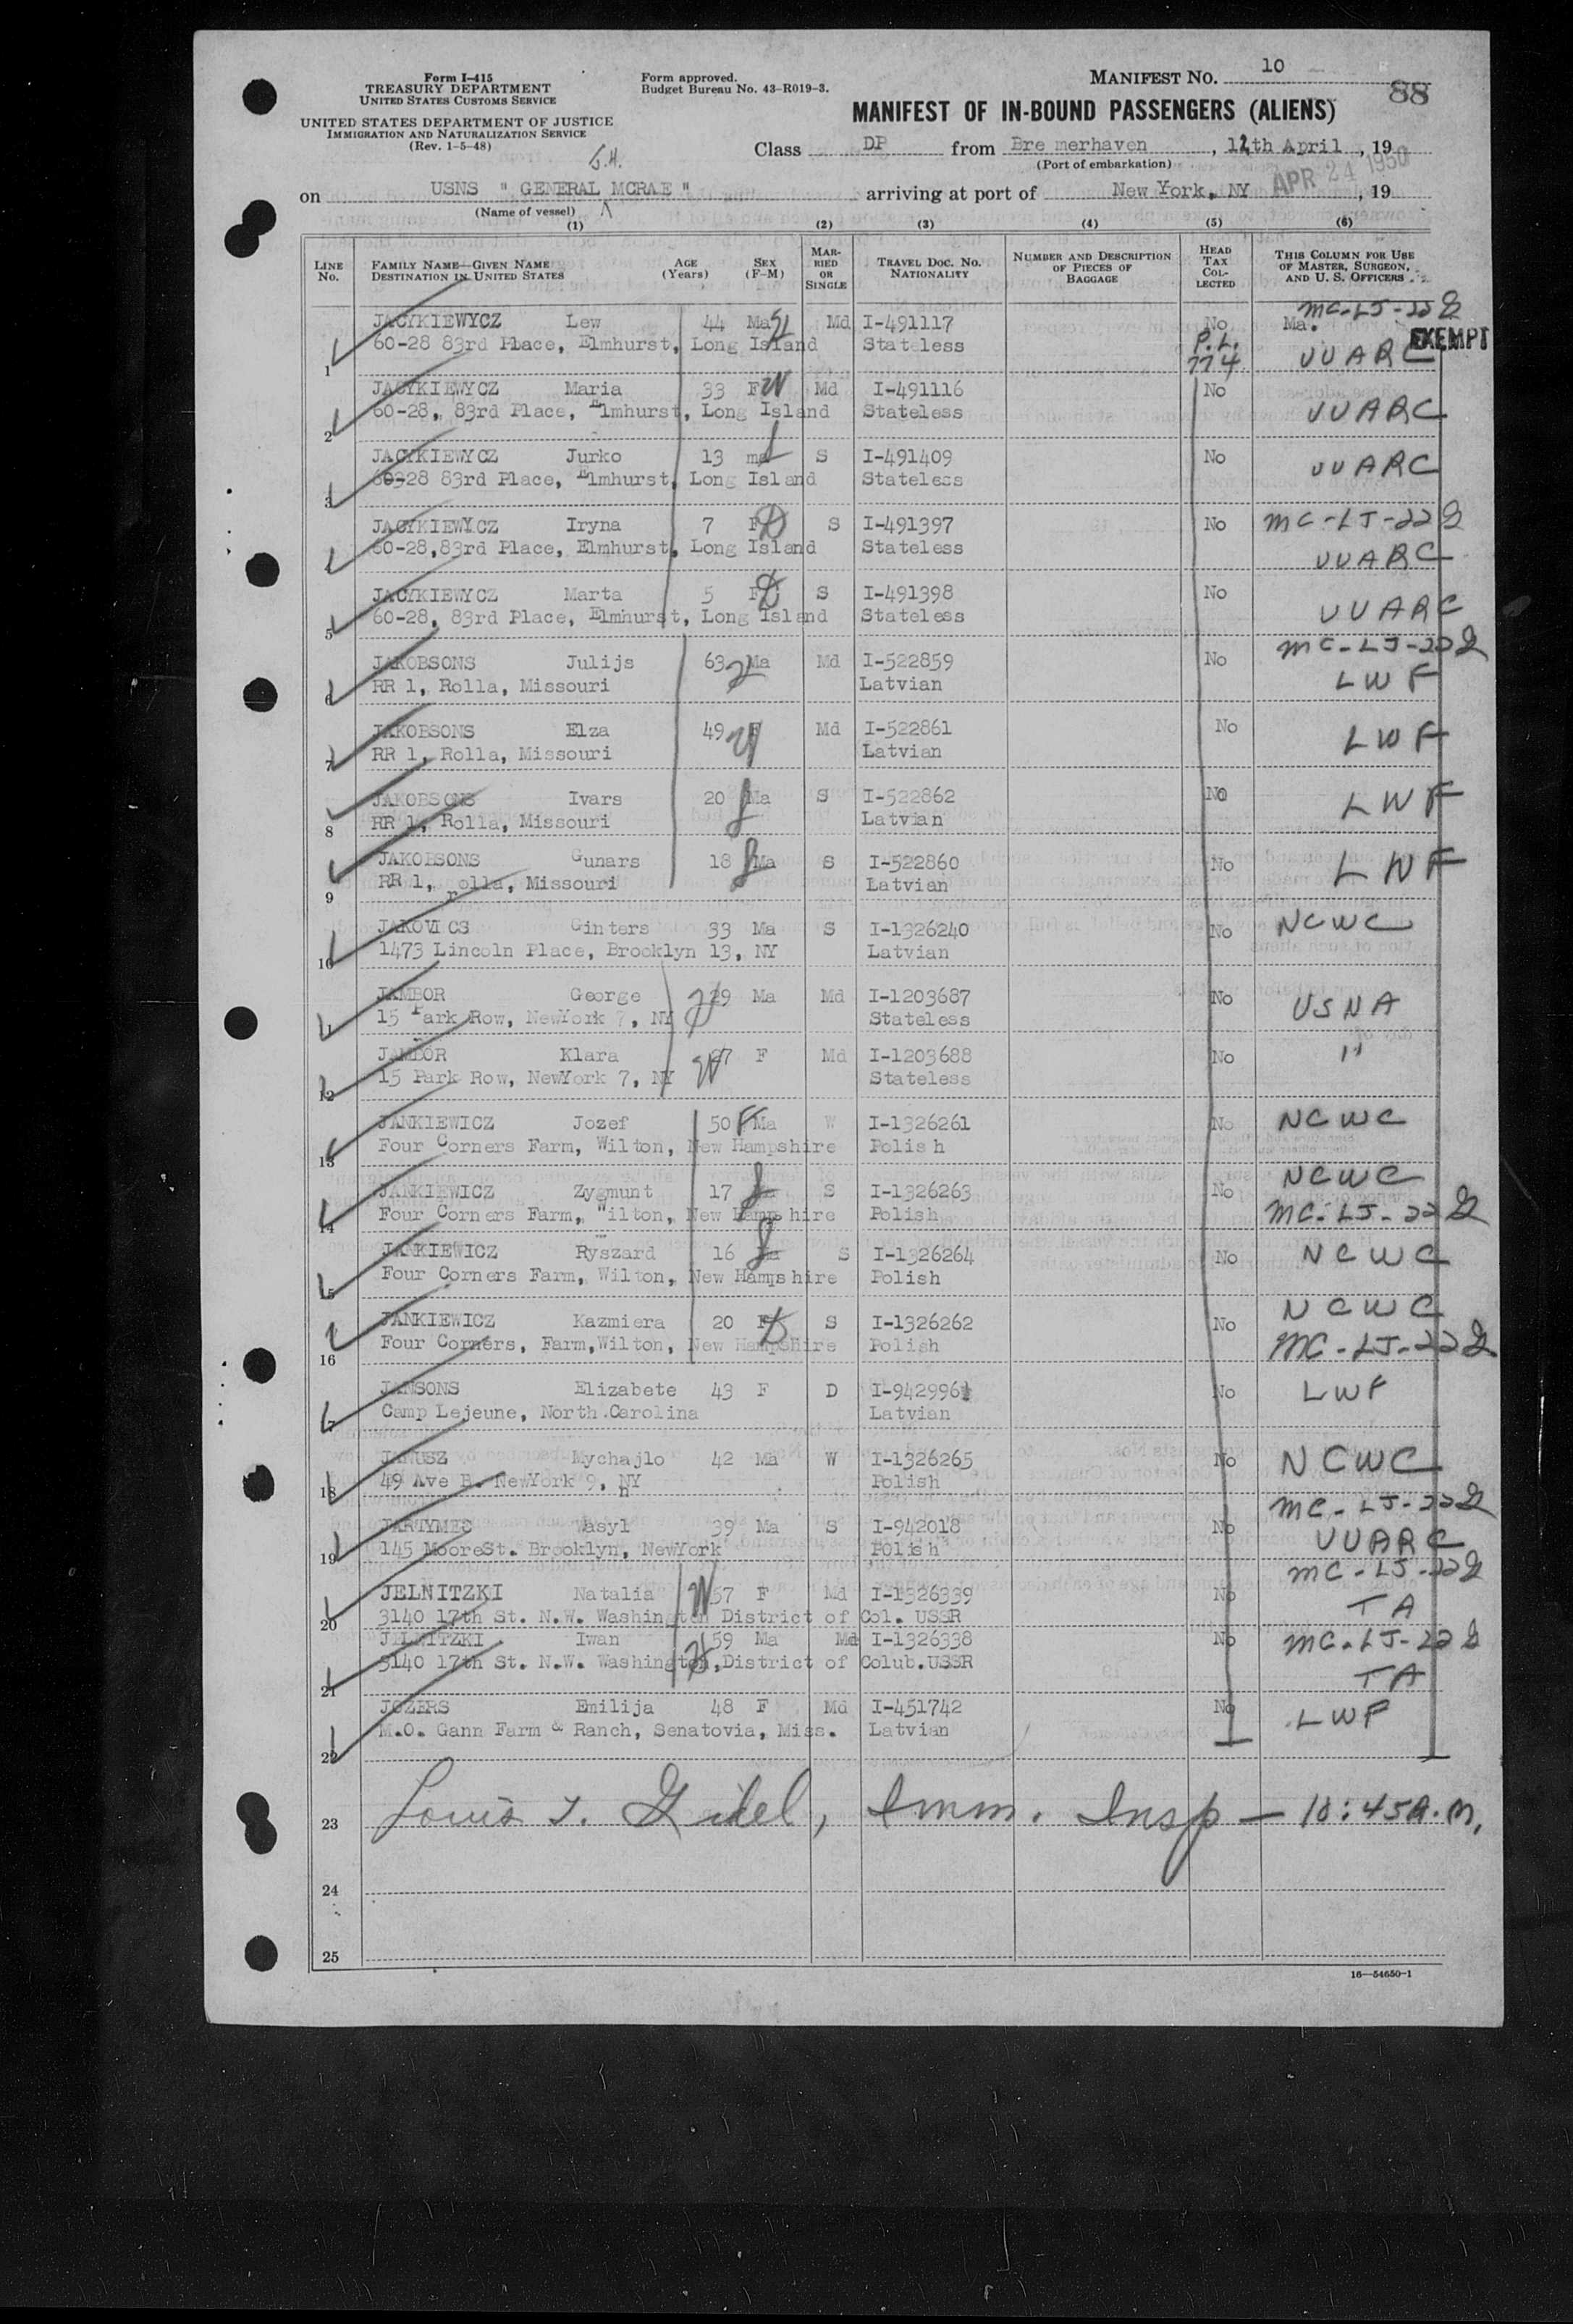 Form I-415
TREASURY DEPARTMENT
UNITED STATES CUSTOMS SERVICE
UNITED STATES DEPARTMENT OF JUSTICE
IMMIGRATION AND NATURALIZATION SERVICE
(Rev. 1-5-48)
Form approved.
Budget Bureau No. 43-R019-3.
MANIFEST NO. 10
88
MANIFEST OF IN-BOUND PASSENGERS (ALIENS)
Class DP from Bre merhaven, 12th April, 19
(Port of embarkation)
on USNS " GENERAL MCRAE " arriving at port of New York, NY APR 24 1950, 19
(Name of vessel)
(1) (2) (3) (4) (5) (6)
LINE No. FAMILY NAME—GIVEN NAME DESTINATION IN UNITED STATES AGE (Years) SEX (F-M) MARRIED OR SINGLE TRAVEL DOC. NO. NATIONALITY NUMBER AND DESCRIPTION OF PIECES OF BAGGAGE HEAD TAX COLLECTED THIS COLUMN FOR USE OF MASTER, SURGEON, AND U. S. OFFICERS
MC-LJ-22
JACYKIEWYCZ Lew 44 Ma Md I-491117 No Ma. EXEMPT
1 60-28 83rd Place, Elmhurst, Long Island Stateless P.L. 774 UUARC
JACYKIEWYCZ Maria 33 F Md I-491116 No
2 60-28, 83rd Place, Elmhurst, Long Island Stateless UUARC
JACYKIEWYCZ Jurko 13 ma S I-491409 No UUARC
3 60-28 83rd Place, Elmhurst, Long Island Stateless
JACYKIEWYCZ Iryna 7 F S I-491397 No MC-LJ-22
60-28,83rd Place, Elmhurst, Long Island Stateless UUARC
JACYKIEWYCZ Marta 5 F S I-491398 No
5 60-28, 83rd Place, Elmhurst, Long Island Stateless UUARC
JAKOBSONS Julijs 63 Ma Md I-522859 No MC-LJ-22
6 RR 1, Rolla, Missouri Latvian LWF
JAKOBSONS Elza 49 F Md I-522861 No
7 RR 1, Rolla, Missouri Latvian LWF
JAKOBSONS Ivars 20 Ma S I-522862 No
8 RR 1, Rolla, Missouri Latvian LWF
JAKOBSONS Gunars 18 Ma S I-522860 No LWF
9 RR 1, rolla, Missouri Latvian
JAKOVICS Ginters 33 Ma S I-1326240 No NCWC
10 1473 Lincoln Place, Brooklyn 13, NY Latvian
JAMBOR George 29 Ma Md I-1203687 No
11 15 Park Row, NewYork 7, NY Stateless USNA
JAMBOR Klara 27 F Md I-1203688 No "
12 15 Park Row, NewYork 7, NY Stateless
JANKIEWICZ Jozef 50 Ma W I-1326261 No NCWC
13 Four Corners Farm, Wilton, New Hampshire Polish
JANKIEWICZ Zygmunt 17 S I-1326263 No NCWC
14 Four Corners Farm, Wilton, New Hampshire Polish MC-LJ-22
JANKIEWICZ Ryszard 16 Ma S I-1326264 No NCWC
15 Four Corners Farm, Wilton, New Hampshire Polish
JANKIEWICZ Kazmiera 20 F S I-1326262 No NCWC
16 Four Corners, Farm,Wilton, New Hampshire Polish MC-LJ-22
JANSONS Elizabete 43 F D I-942996 No LWF
17 Camp Lejeune, North Carolina Latvian
JANUSZ Mychajlo 42 Ma W I-1326265 No NCWC
18 49 Ave B. NewYork 9, NY Polish
MC-LJ-22
JARTYMES Wasyl 39 Ma S I-942018 No UUARC
19 145 MooreSt. Brooklyn, NewYork Polish
MC-LJ-22
JELNITZKI Natalia 57 F Md I-1326339 No
20 3140 17th St. N.W. Washington District of Col. USSR TA
JELNITZKI Iwan 59 Ma Md I-1326338 No MC-LJ-22
21 3140 17th St. N.W. Washington,District of Colub.USSR TA
JOZERS Emilija 48 F Md I-451742 No
22 M.O. Gann Farm & Ranch, Senatovia, Miss. Latvian LWF
23 Louis Imm. Insp — 10:45 A.M.
24
25
16—54650-1